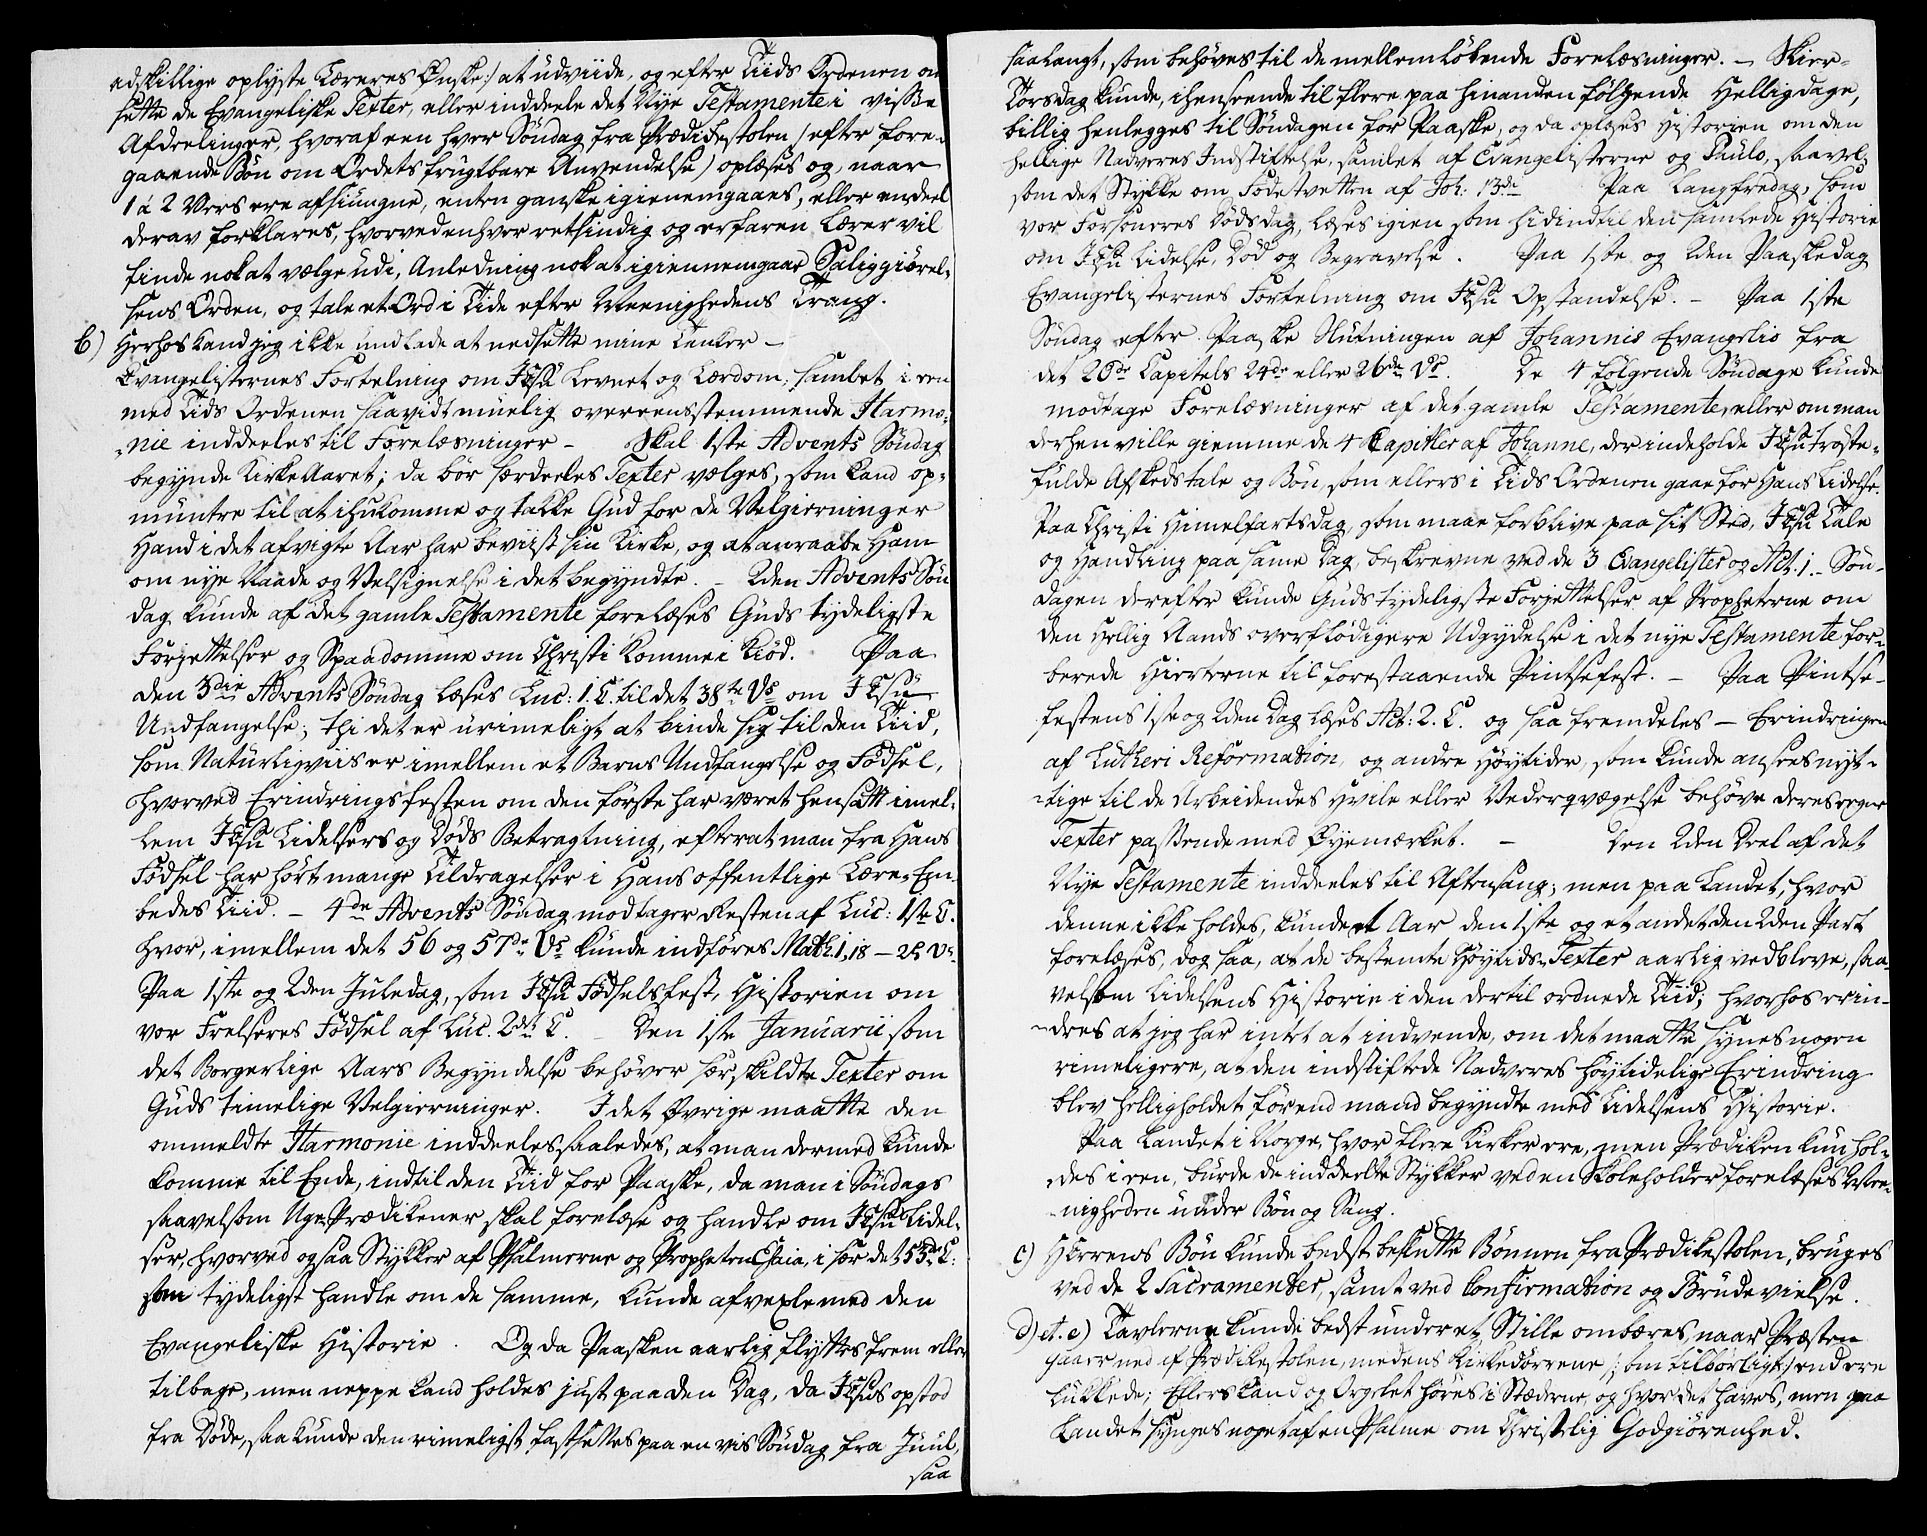 adskillige oplyste Læreres Ønske:/ at udviide, og efter Tiids Ordenen om
sætte de Evangeliske Texter, eller inddeele det Nye Testamente i visse
Afdeelinger, hvoraf een hver Søndag fra Prædikestolen /efter fore-
gaaende Bøn om Ordets frugtbare Anvendelse/ oplæses og, naar
1 à 2 Vers ere afsiungne, enten ganske igiennemgaaes, eller endeel
derav forklares, hvorved enhver retsindig og erfaren Lærer vil
finde nok at vælge udi, Anledning nok at igiennemgaae Saliggiørel-
sens Orden, og tale et Ord i Tide efter Meenighedens Trang.
b) Herhos kand jeg ikke undlade at nedsætte mine Tanker –
Evangelisternes Fortelning om JEsu Levnet og Lærdom, samlet i een
med Tids Ordenen saavidt muelig overeensstemmende Harmo-
nie inddeeles til Forelæsninger – Skal 1ste Advents Søndag
begynde Kirke Aaret; da bør særdeeles Texter vælges, som kand op-
muntre til at ihukomme og takke Gud for de Velgierninger
Hand i det afvigte Aar har beviist sin Kirke, og at anraabe Ham
om nye Naade og Velsignelse i det begyndte. – 2den Advents Søn
dag kunde af det gamle Testamente forelæses Guds tydeligste
Forjettelser og Spaadomme om Christi Komme i Kiød. Paa
den 3die Advents Søndag læses Luc: 1. C. til det 38te Vs om JEsu
Undfangelse; thi det er urimeligt at binde sig til den Tiid,
som Naturligviis er imellem et Barns Undfangelse og Fødsel,
hvorved Erindrings festen om den første har været hensatt imel-
lem JEsu Lidelsers og Døds Betragtning, efterat man fra Hans
Fødsel har hørt mange Tildragelser i Hans offentlige Lære-Em-
bedes Tiid. – 4de Advents Søndag modtager Resten af Luc: 1ste C.
hvor, imellem det 56 og 57de Vs kunde indføres Math. 1, 18 – 25 Vs.
Paa 1ste og 2den Juledag, som JEsu Fødselsfest, Historien om
vor Frelseres Fødsel af Luc. 2det C. – Den 1ste Januarii som
det Borgerlige Aars Begyndelse behøver særskildte Texter om
Guds timelige Velgierninger. I det Øvrige maatte den
ommeldte Harmonie inddeeles saaledes, at man dermed kunde
komme til Ende, indtil den Tiid for Paaske, da man i Søndags
saavelsom Uge-Prædikener skal forelæse og handle om JEsu Lidel-
ser, hvorved ogsaa Stykker af Psalmerne og Propheten Esaia, i sær det 53de C:
som tydeligst handle om de samme, kunde afvexle med den
Evangeliske Historie. Og da Paasken aarlig flyttes frem eller
tilbage, men neppe kand holdes just paa den Dag, da JEsus opstod
fra Døde, saa kunde den rimeligst fastsættes paa en vis Søndag fra Juul,
saa
saa langt, som behøves til de mellemløbende Forelæsninger. – Skier-
Torsdag kunde, i henseende til flere paa hinanden følgende Helligdage,
billig henlegges til Søndagen for Paaske, og da oplæses Historien om den
hellige Nadveres Indstiftelse, samlet af Evangelisterne og Paulo, saavel-
som det Stykke om Fodetvetten af Joh: 13de Paa Langfredag, som
vor Forsoneres Dødsdag, læses igien som hidindtil den samlede Historie
om JEsu Lidelse, Død og Begravelse. Paa 1ste og 2den Paaskedag
Evangelisternes Fortelning om JEsu Opstandelse. – Paa 1ste
Søndag efter Paaske Slutningen af Johannis Evangelio fra
det 20de Capitels 24de eller 26de Vs. De 4 følgende Søndage kunde
modtage Forelæsninger af det gamle Testamente, eller om man
derhen ville giemme de 4 Capitler af Johanne, der indeholde JEsu trøste-
fulde Afskeds tale og Bøn, som ellers i Tids Ordenen gaae for Hans Lidelse.
Paa Christi Himelfarts dag, som maae forblive paa sit Sted, JEsu Tale
og Handling paa samme Dag, beskrevne ved de 3 Evangelister og Act: 1. – Søn-
dagen derefter kunde Guds tydeligste Forjettelser af Propheterne om
den Hellig Aands overflødigere Udgydelse i det nye Testamente for-
berede Hierterne til forestaaende Pintsefest. – Paa Pintse-
festens 1ste og 2den Dag læses Act: 2. C. og saa fremdeles – Erindringen
af Lutheri Reformation, og andre Høytider, som kunde ansees nyt-
tige til de Arbeidendes Hvile eller Vederqvægelse behøve deres egne
Texter passende med Øyemærket. – Den 2den Deel af det
Nye Testamente inddeeles til Aftensang; men paa Landet, hvor
denne ikke holdes, kunde et Aar den 1ste og et andet den 2den Part
forelæses, dog saa, at de bestemte Høytids-Texter aarlig vedbleve, saa-
velsom Lidelsens Historie i den dertil ordnede Tiid; hvorhos erin-
dres at jeg har intet at indvende, om det maatte synes nogen
rimeligere, at den indstiftede Nadveres høytidelige Erindring
blev helligholdet førend mand begyndte med Lidelsens Historie.
Paa Landet i Norge, hvor flere Kirker ere, men Prædiken kun hol-
des i een, burde de inddeelte Stykker ved en Skoleholder forelæses Mee-
nigheden under Bøn og Sang.
c) HErrens Bøn kunde bedst beslutte Bønnen fra Prædikestolen, bruges
ved de 2 Sacramenter, samt ved Confirmation og Brudevielse.
d) et. e) Tavlerne kunde bedst under et Stille ombæres, naar Præsten
gaaer ned af Prædikestolen, medens Kirkedørrene /: om tilbørligt:/ end ere
lukkede; Ellers kand og Orgelet høres i Stæderne, og hvor det haves, men paa
Landet synges noget af en Psalme om Christelig Godgiørenhed.